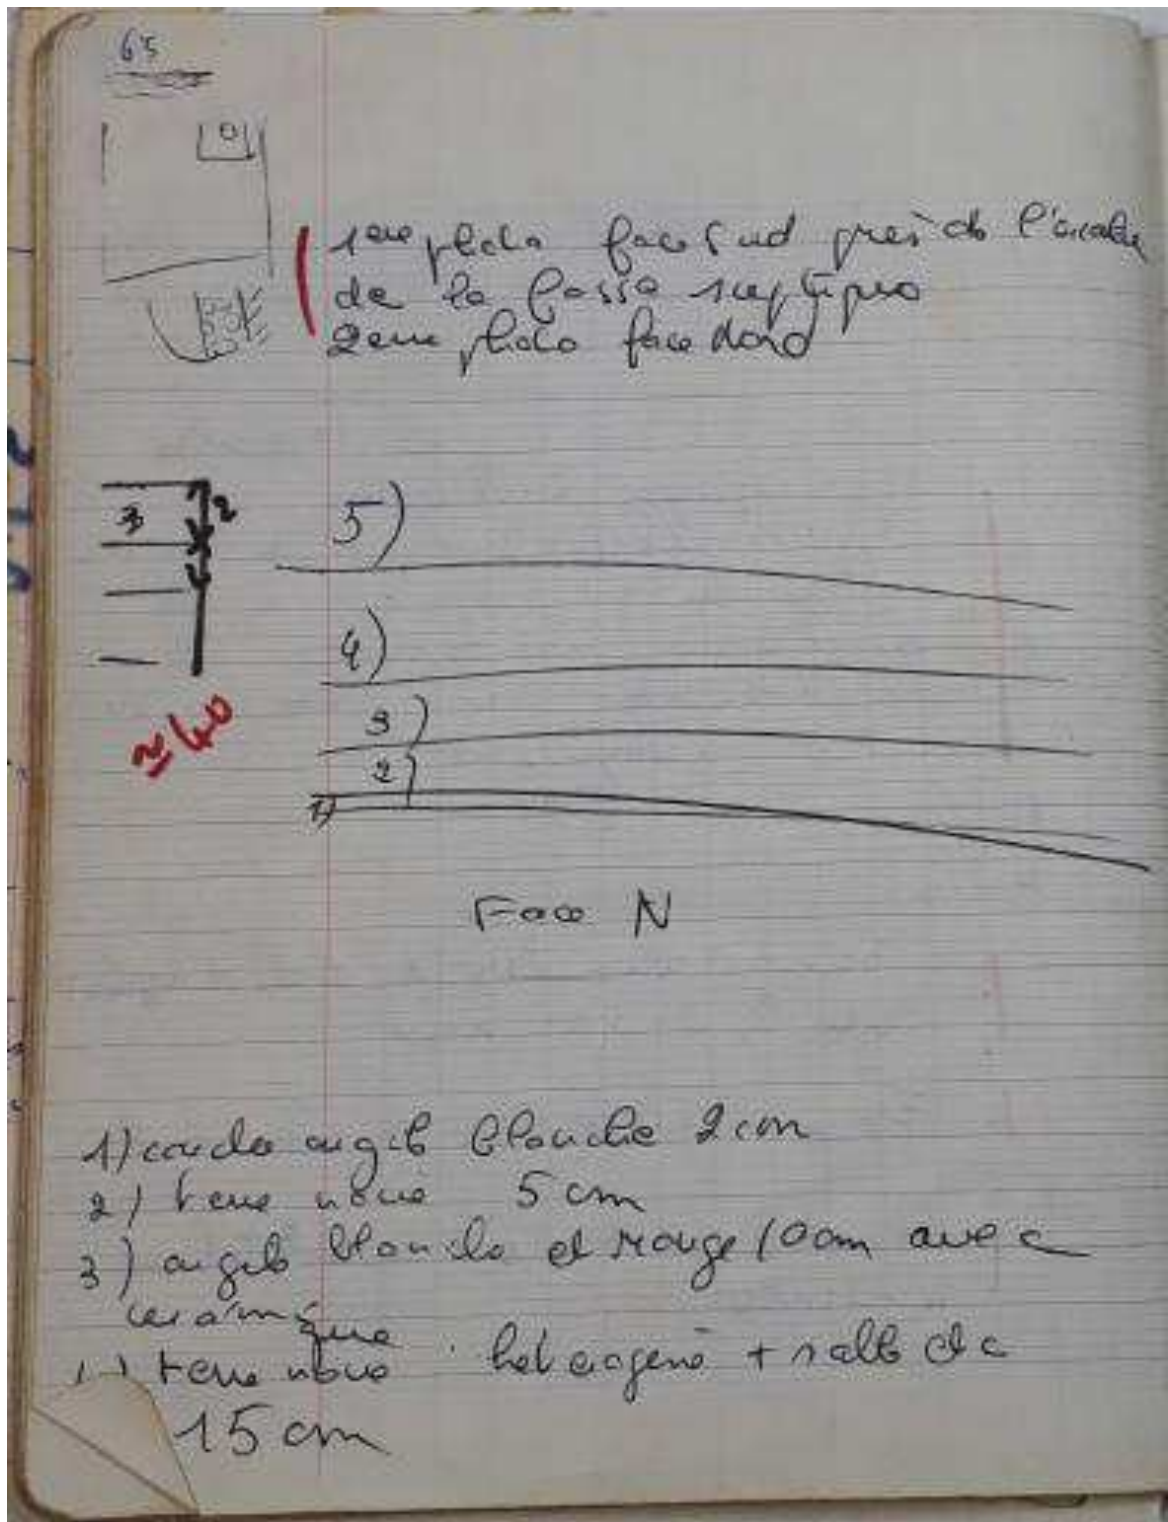 65
1ere photo face Sud près de l'escalier
de la fosse septique
2eme photo face Nord
3
2
≈ 40
5)
4)
3)
2)
1)
Face N
1) couche argile blanche 2 cm
2) terre noire 5 cm
3) argile blanche et rouge 10cm avec
céramique
terre noire hétérogène + sable etc
15 cm